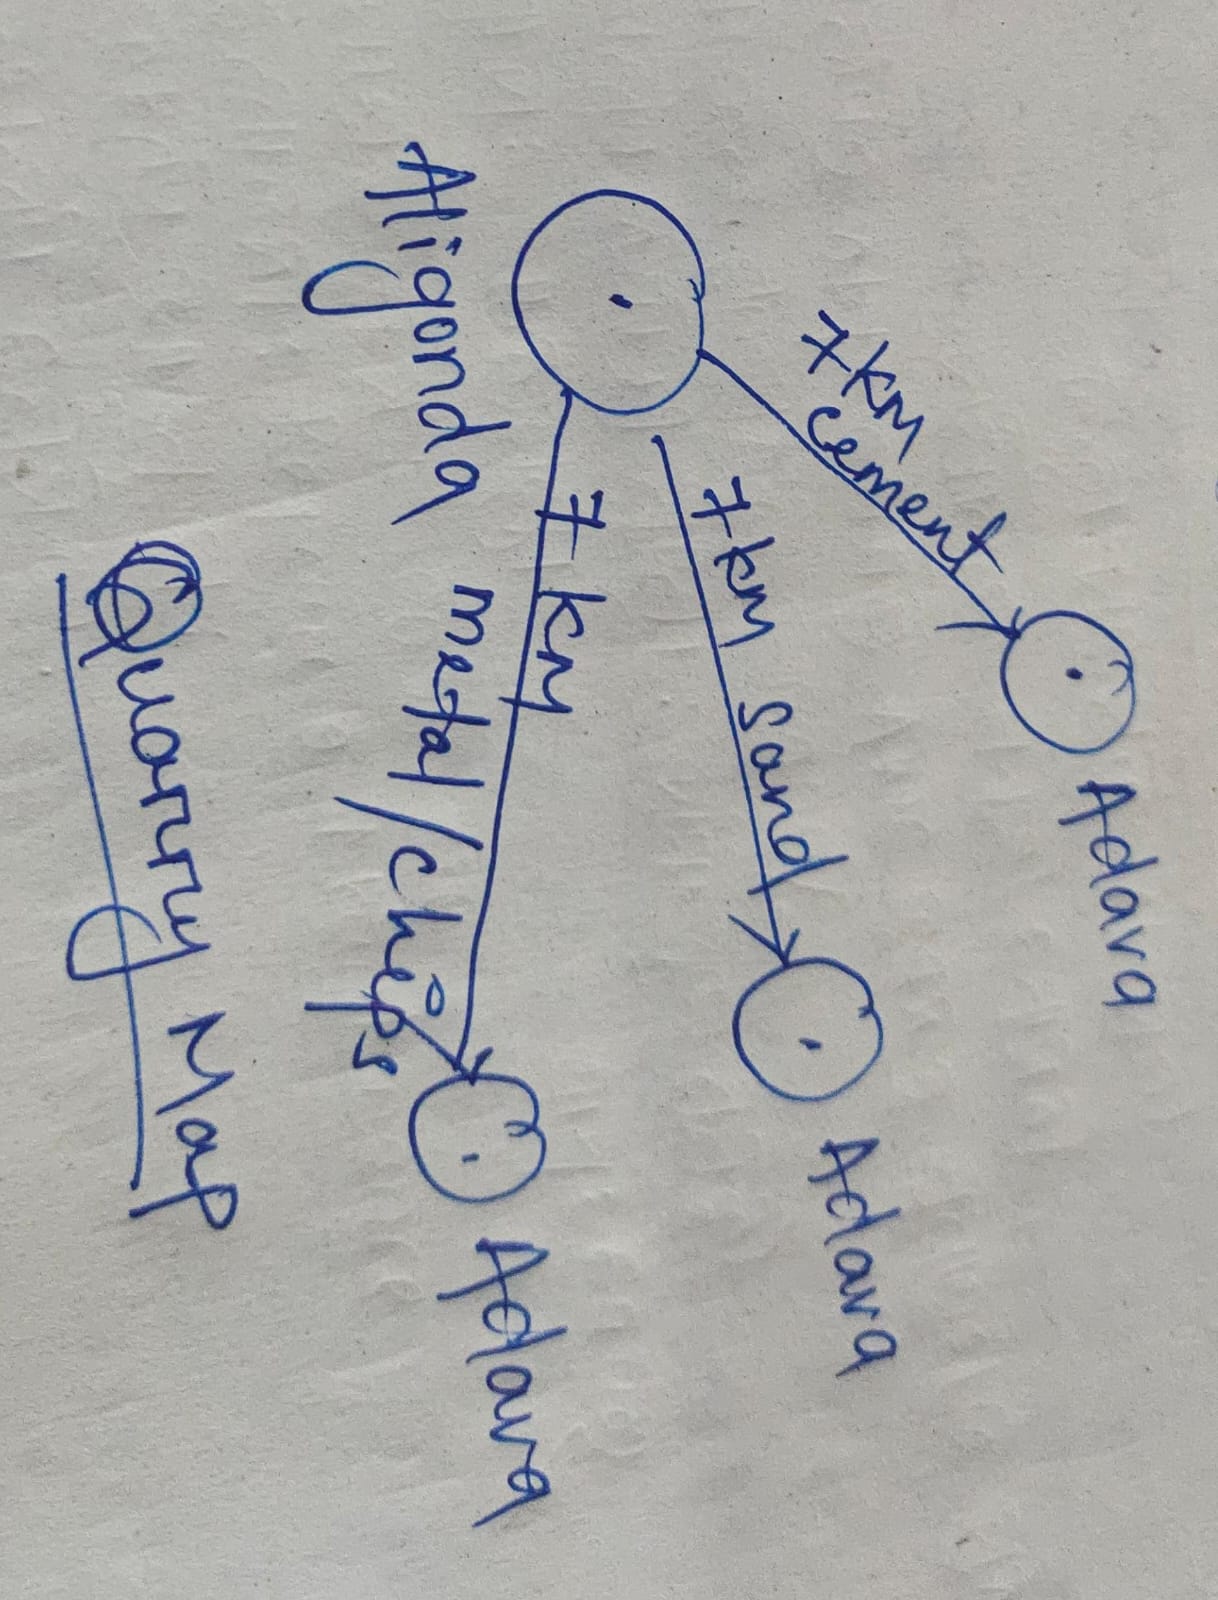 7km
cement
Adara
7km sand
Adara
7 km
metal/chips
Adara
Aligonda
Quarry Map